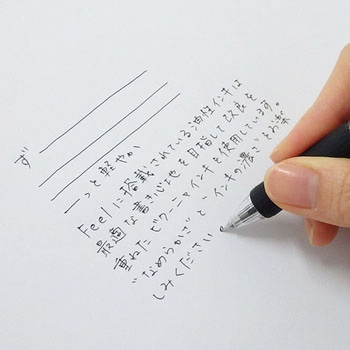 ず
ーっと軽やか
Feelに搭載されている油性インキは
最適な書き心地を目指して改良を
重ねたビクーニャインキを使用しています。
“なめらかさ”と“インキの濃さ”をお楽
しみください。